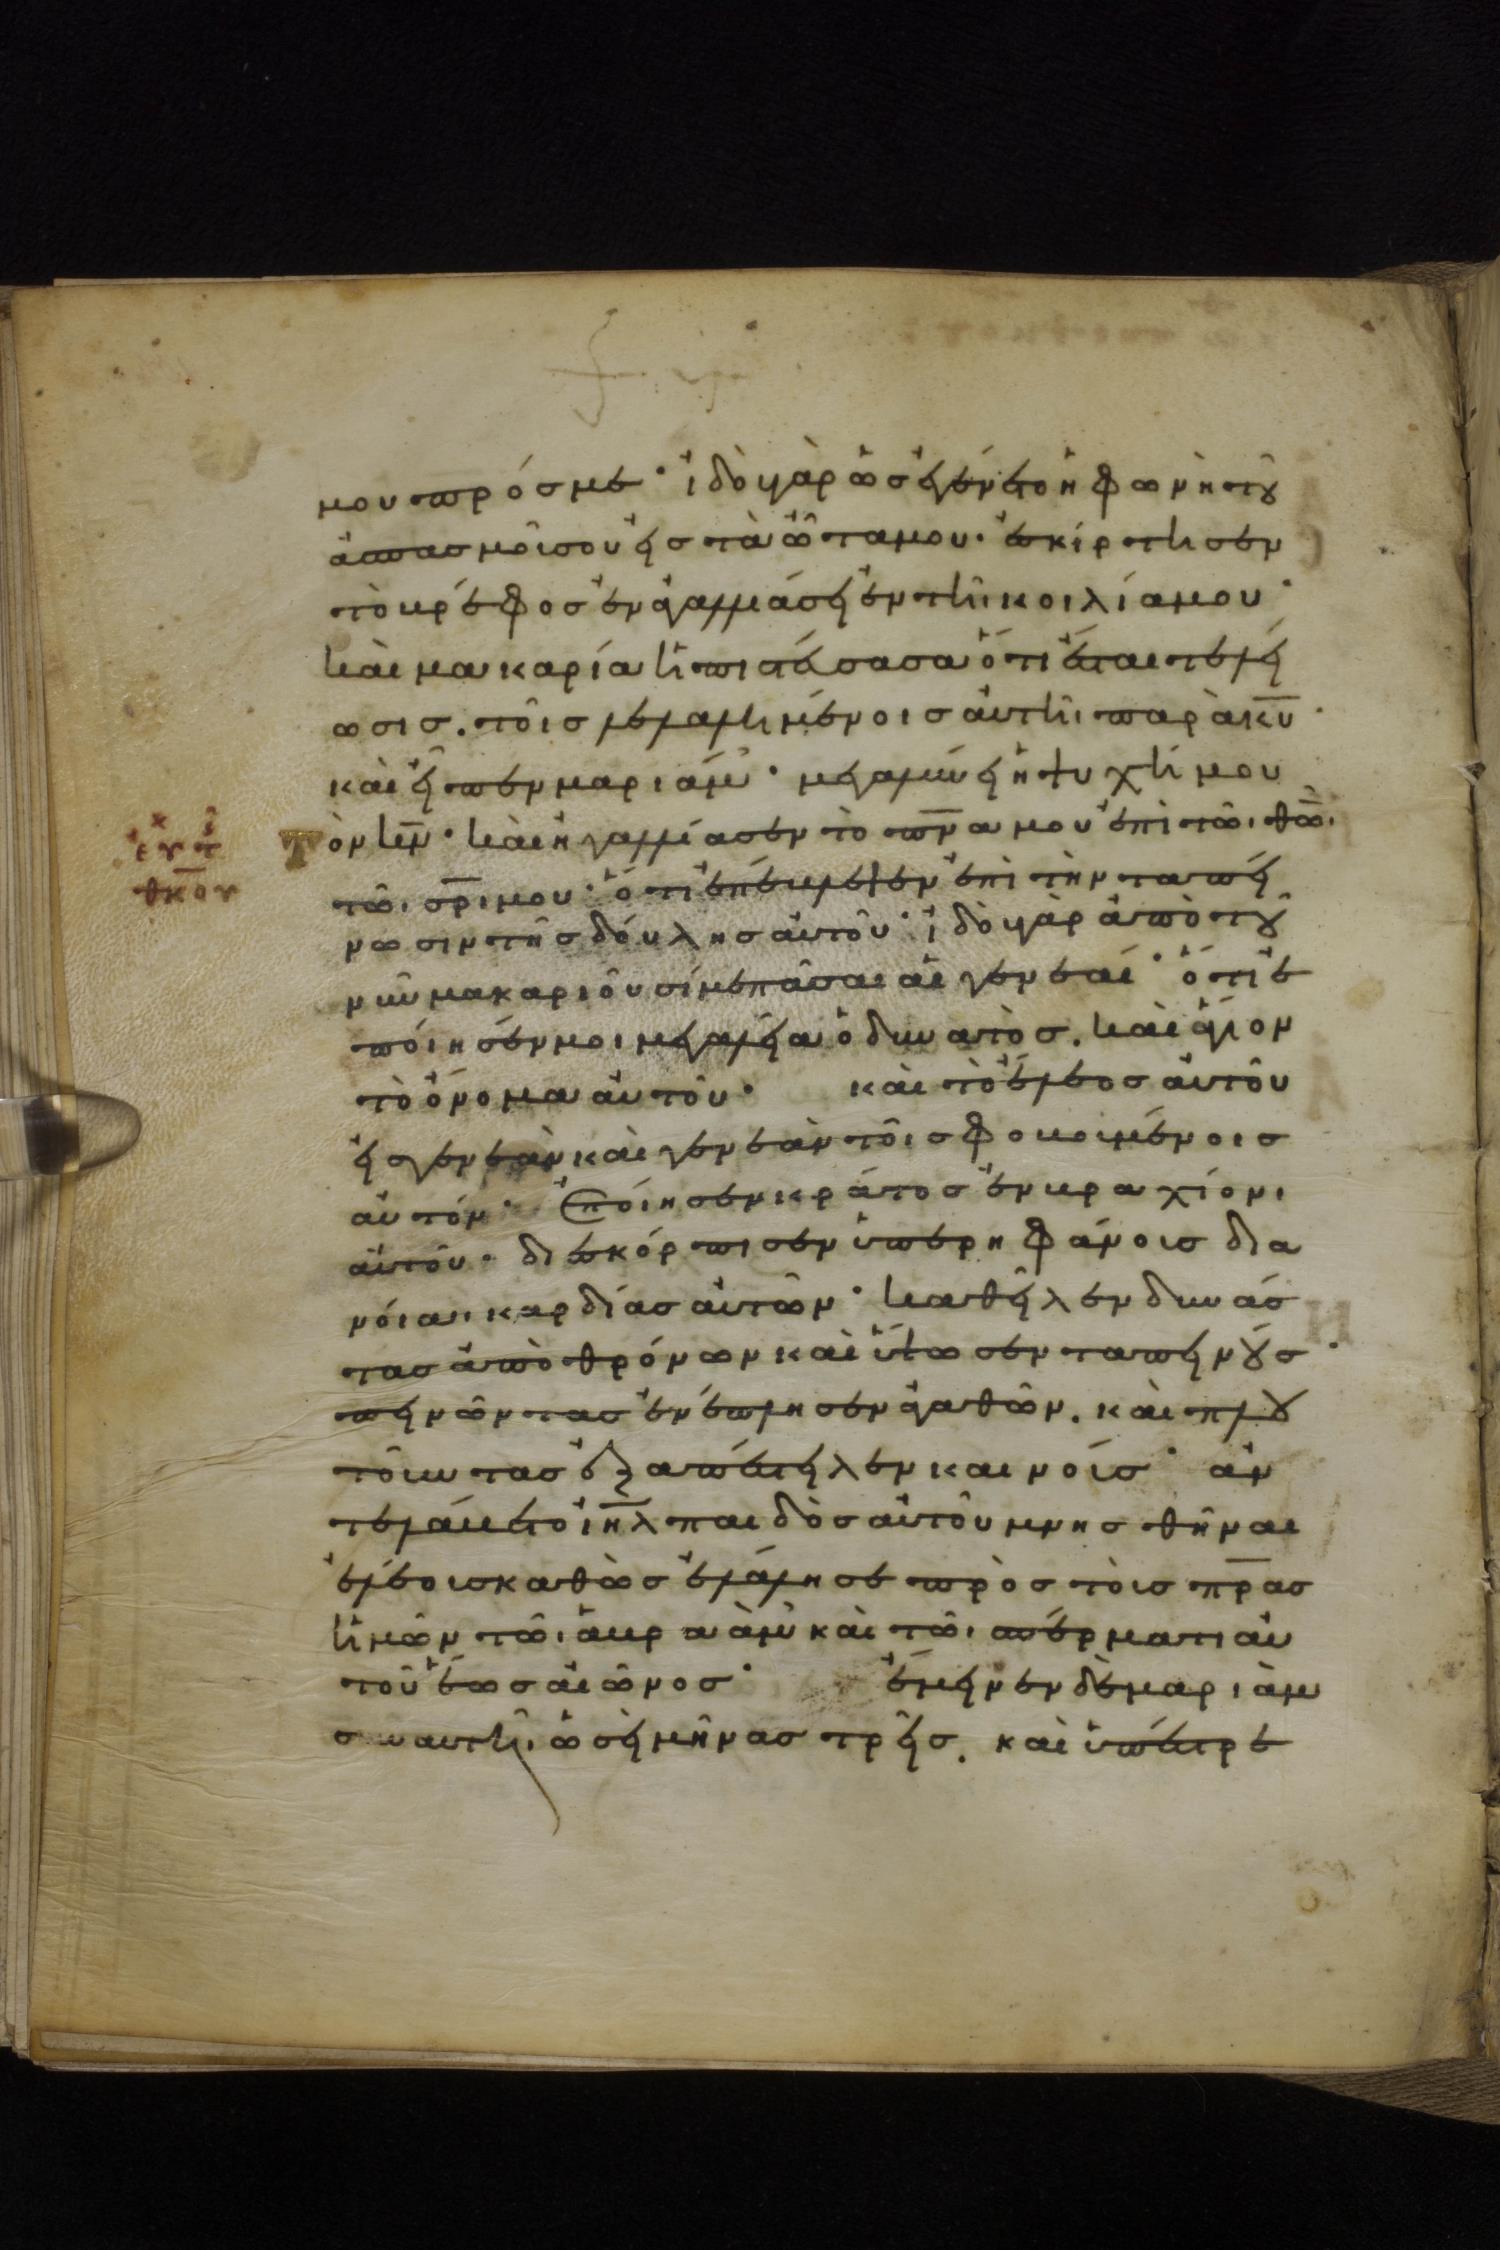 μου πρός με· ἰδοὺ γὰρ ὡς ἐγένετο ἡ φωνὴ τοῦ
ἀσπασμοῦ σου εἰς τὰ ὦτα μου. ἐσκίρτησεν
τὸ βρέφος ἐν ἀγαλλιάσει ἐν τῆι κοιλία μου·
καὶ μακαρία ἡ πιστεύσασα ὅτι ἔσται τελεί
ωσις. τοῖς λελαλημένοις αὐτῆι παρὰ κ̅υ̅·
καὶ εἶπεν μαριάμ· μεγαλύνει ἡ ψυχή μου
Τὸν κ̅ν̅· καὶ ἠγαλλίασεν τὸ π̅ν̅α μου ἐπὶ τῶι θ̅ω̅ι.
τῶι σ̅ρ̅ι μου· ὅτι ἐπέβλεψεν ἐπὶ τὴν ταπεί
νωσιν τῆς δούλης αὐτοῦ· ἰδοὺ γὰρ ἀπὸ τοῦ
νῦν μακαριοῦσίν με πᾶσαι αἱ γενεαί· ὅτι ἐ
ποίησέν μοι μεγαλεῖα ὁ δυνατὸς. καὶ ἅγιον
τὸ ὄνομα αὐτοῦ· καὶ τὸ ἔλεος αὐτοῦ
εἰς γενεὰν καὶ γενεὰν τοῖς φοβουμένοις
αὐτόν· Ἐποίησεν κράτος ἐν βραχίονι
αὐτοῦ· διεσκόρπισεν ὑπερηφάνοις δια
νοίαι καρδίας αὐτῶν· καθεῖλεν δυνάσ
τας ἀπὸ θρόνων καὶ ὕψωσεν ταπεινούς·
πεινῶντας ἐνέπλησεν ἀγαθῶν. καὶ πλου
τοῦντας ἐξαπέστειλεν καινοίς· ἀν
τελάβετο ἰ̅η̅λ̅ παιδὸς αὐτοῦ μνησθῆναι
ἐλέοις καθὼς ἐλάλησε πρὸς τοὶς π̅ρ̅ας
ἡμῶν τῶι ἁβραὰμ καὶ τῶι σπέρματι αὐ
τοῦ ἕως αἰῶνος· ἔμεινεν δὲ μαριὰμ
σὺν αυτῆι ὡσεὶ μῆνας τρεῖς. καὶ ὑπέστρε